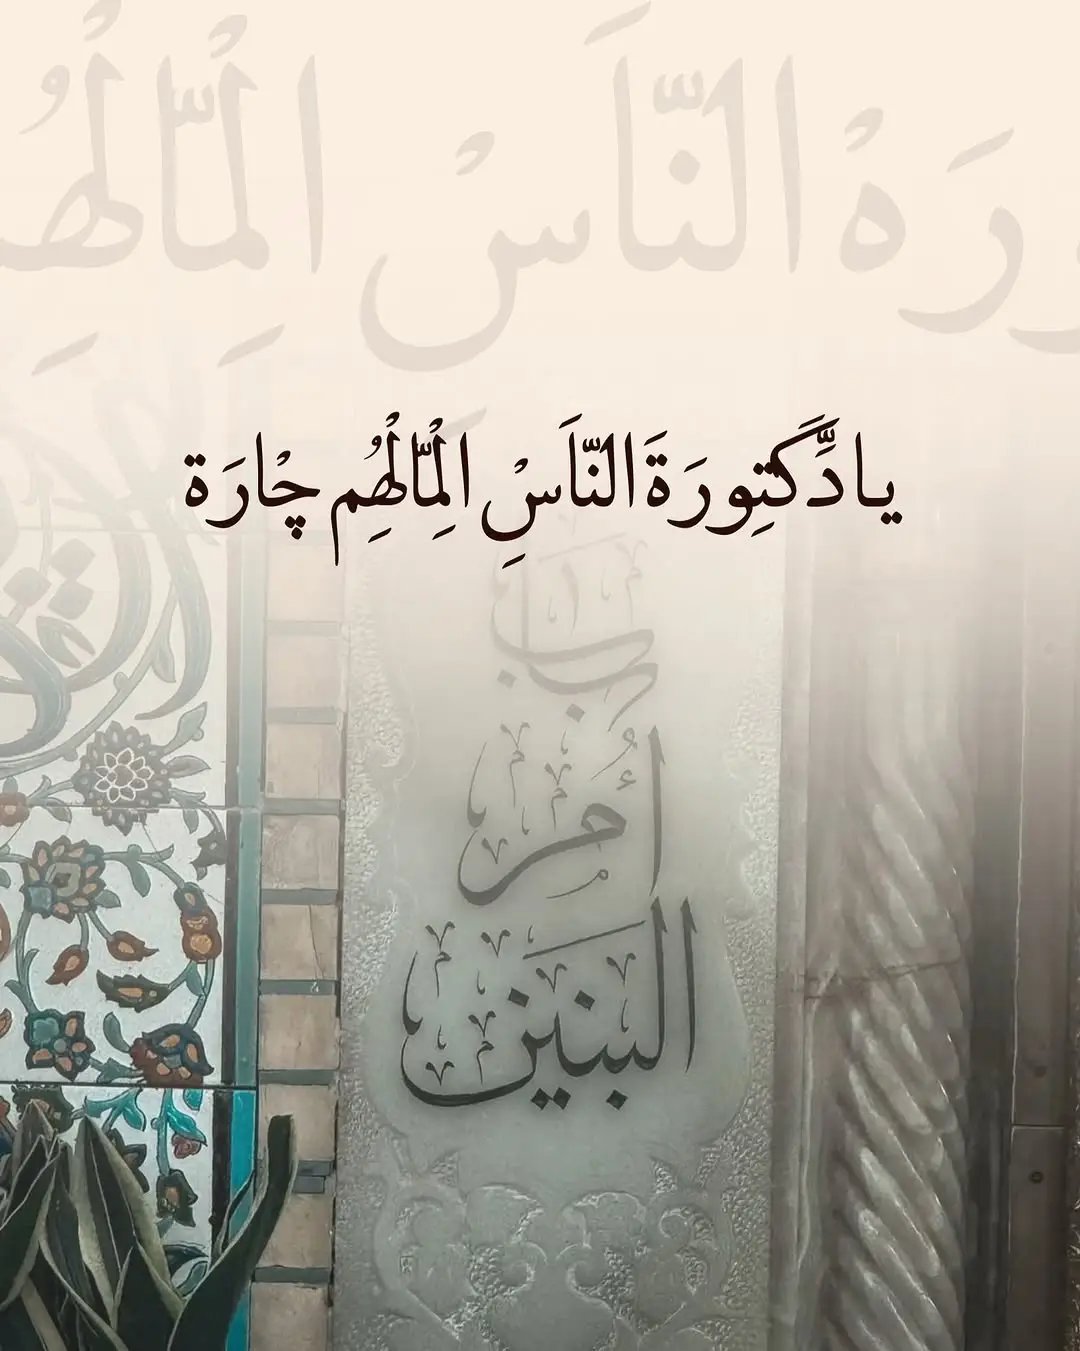 ورَة النَّاسْ الِمَّالْهُم
يا دِّكَتِورَة النَّاسْ الِمَّالْهُم چْارَة
باب
أُم
البنين